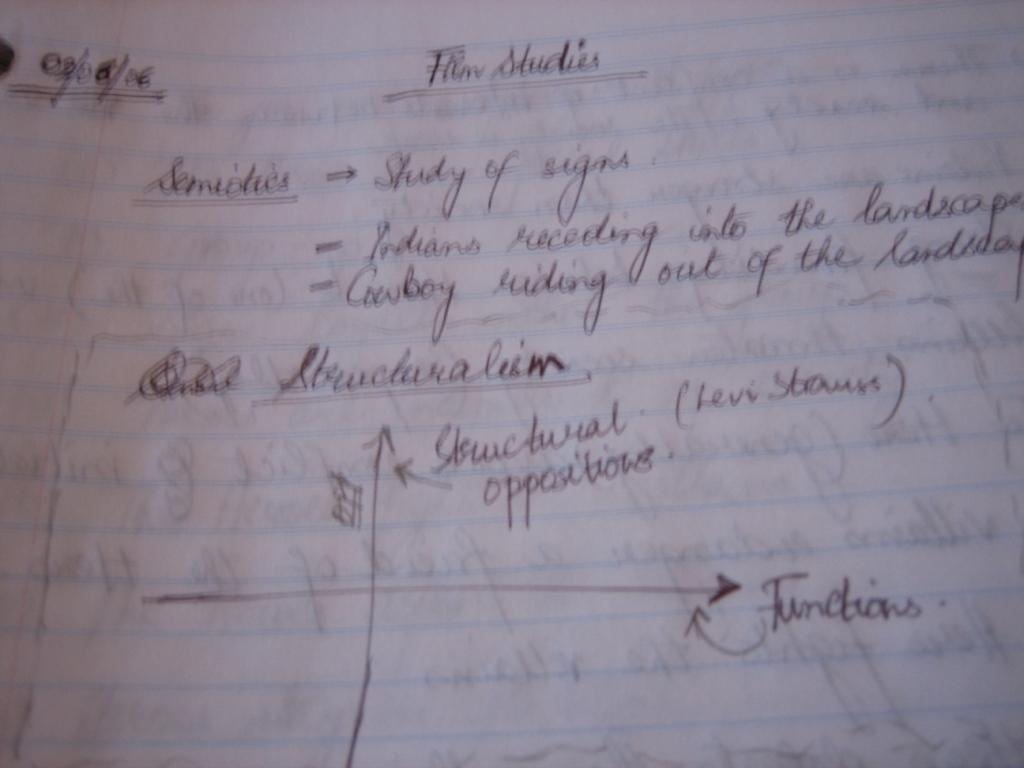 Film Studies
Semiotics → Study of signs.
- Indians receding into the landscape
- Cowboy riding out of the landscap
Structuralism.
Structural (Levi Strauss).
oppositions.
Functions.